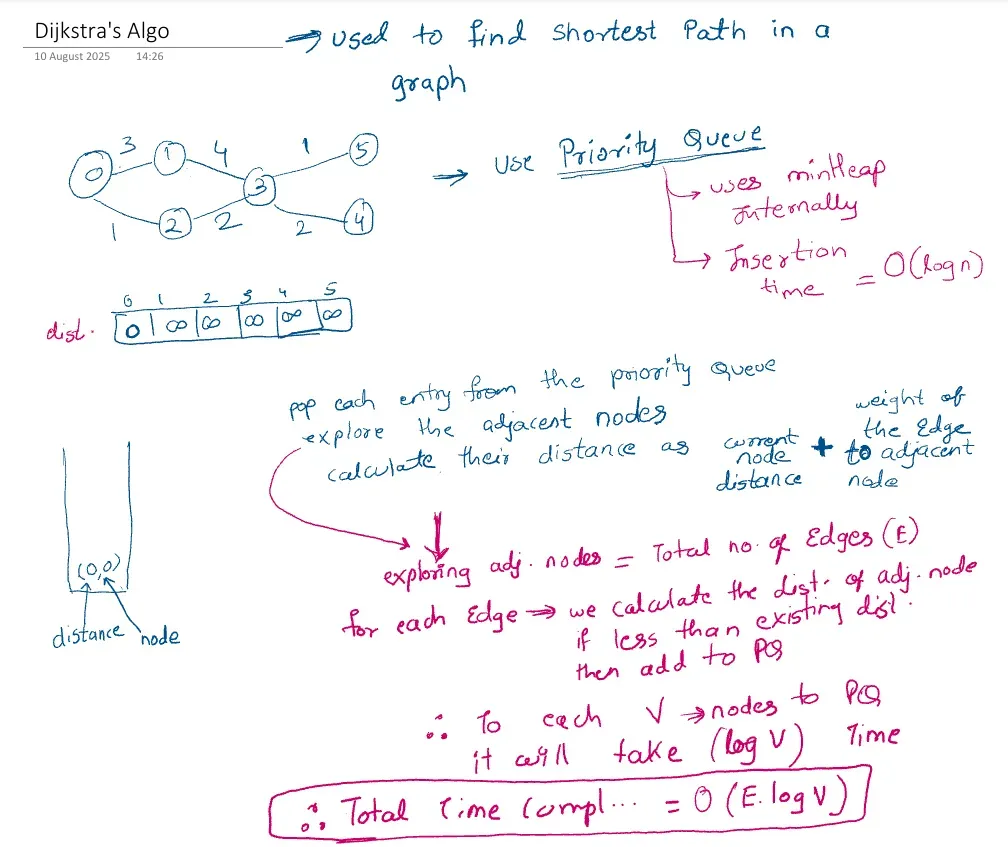 Dijkstra's Algo
10 August 2025 14:26
→ used to find shortest Path in a
graph
0 3 1 4 3 1 5
1 2 2 2 4
→ use Priority Queue
→ uses minHeap
Internally
→ Insertion
time = O(log n)
0 1 2 3 4 5
dist. 0 ∞ ∞ ∞ ∞ ∞
pop each entry from the priority Queue
explore the adjacent nodes
calculate their distance as current node distance + weight of the Edge to adjacent node
(0,0)
distance node
exploring adj. nodes = Total no. of Edges (E)
for each Edge → we calculate the dist. of adj. node
if less than existing dist.
then add to PQ
∴ To each V → nodes to PQ
it will take (log V) Time
∴ Total Time Compl... = O (E. log V)